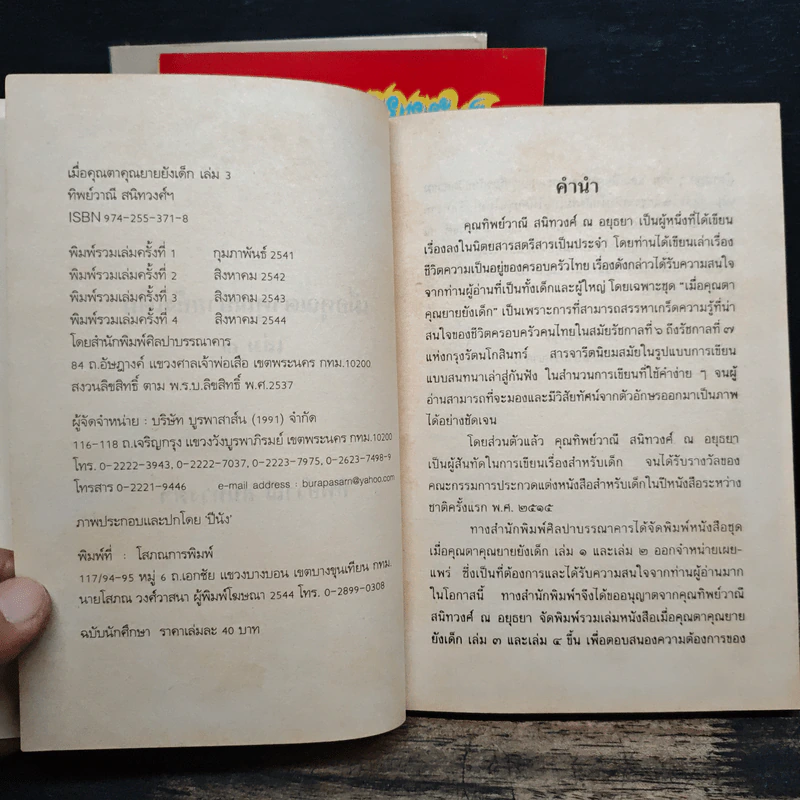 เมื่อคุณตาคุณยายยังเด็ก เล่ม 3
ทิพย์วาณี สนิทวงศ์ฯ
ISBN 974-255-371-8
พิมพ์รวมเล่มครั้งที่ 1 กุมภาพันธ์ 2541
พิมพ์รวมเล่มครั้งที่ 2 สิงหาคม 2542
พิมพ์รวมเล่มครั้งที่ 3 สิงหาคม 2543
พิมพ์รวมเล่มครั้งที่ 4 สิงหาคม 2544
โดยสำนักพิมพ์ศิลปาบรรณาคาร
84 ถ.อัษฎางค์ แขวงศาลเจ้าพ่อเสือ เขตพระนคร กทม.10200
สงวนลิขสิทธิ์ ตาม พ.ร.บ.ลิขสิทธิ์ พ.ศ.2537
ผู้จัดจำหน่าย : บริษัท บูรพาสาส์น (1991) จำกัด
116-118 ถ.เจริญกรุง แขวงวังบูรพาภิรมย์ เขตพระนคร กทม.10200
โทร. 0-2222-3943, 0-2222-7037, 0-2223-7975, 0-2623-7498-9
โทรสาร 0-2221-9446 e-mail address : burapasarn@yahoo.com
ภาพประกอบและปกโดย 'ปีนัง'
พิมพ์ที่ : โสภณการพิมพ์
117/94-95 หมู่ 6 ถ.เอกชัย แขวงบางบอน เขตบางขุนเทียน กทม.
นายโสภณ วงศ์วาสนา ผู้พิมพ์โฆษณา 2544 โทร. 0-2899-0308
ฉบับนักศึกษา ราคาเล่มละ 40 บาท
คำนำ
คุณทิพย์วาณี สนิทวงศ์ ณ อยุธยา เป็นผู้หนึ่งที่ได้เขียน
เรื่องลงในนิตยสารสตรีสารเป็นประจำ โดยท่านได้เขียนเล่าเรื่อง
ชีวิตความเป็นอยู่ของครอบครัวไทย เรื่องดังกล่าวได้รับความสนใจ
จากท่านผู้อ่านที่เป็นทั้งเด็กและผู้ใหญ่ โดยเฉพาะชุด "เมื่อคุณตา
คุณยายยังเด็ก" เป็นเพราะการที่สามารถสรรหาเกร็ดความรู้ที่น่า
สนใจของชีวิตครอบครัวคนไทยในสมัยรัชกาลที่ ๖ ถึงรัชกาลที่ ๗
แห่งกรุงรัตนโกสินทร์ สารจารีตนิยมสมัยในรูปแบบการเขียน
แบบสนทนาเล่าสู่กันฟัง ในสำนวนการเขียนที่ใช้คำง่าย ๆ จนผู้
อ่านสามารถที่จะมองและมีวิสัยทัศน์จากตัวอักษรออกมาเป็นภาพ
ได้อย่างชัดเจน
โดยส่วนตัวแล้ว คุณทิพย์วาณี สนิทวงศ์ ณ อยุธยา
เป็นผู้สันทัดในการเขียนเรื่องสำหรับเด็ก จนได้รับรางวัลของ
คณะกรรมการประกวดแต่งหนังสือสำหรับเด็กในปีหนังสือระหว่าง
ชาติครั้งแรก พ.ศ. ๒๕๑๕
ทางสำนักพิมพ์ศิลปาบรรณาคารได้จัดพิมพ์หนังสือชุด
เมื่อคุณตาคุณยายยังเด็ก เล่ม ๑ และเล่ม ๒ ออกจำหน่ายเผย-
แพร่ ซึ่งเป็นที่ต้องการและได้รับความสนใจจากท่านผู้อ่านมาก
ในโอกาสนี้ ทางสำนักพิมพ์ฯจึงได้ขออนุญาตจากคุณทิพย์วาณี
สนิทวงศ์ ณ อยุธยา จัดพิมพ์รวมเล่มหนังสือเมื่อคุณตาคุณยาย
ยังเด็ก เล่ม ๓ และเล่ม ๔ ขึ้น เพื่อตอบสนองความต้องการของ